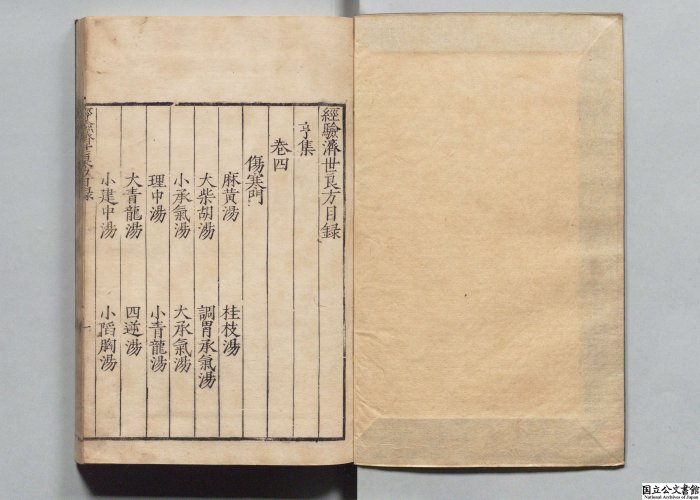 經驗濟世良方目録
亨集
卷四
傷寒門
麻黃湯 桂枝湯
大柴胡湯 調胃承氣湯
小承氣湯 大承氣湯
理中湯 小青龍湯
大青龍湯 四逆湯
小建中湯 小陷胸湯
国立公文書館
National Archives of Japan